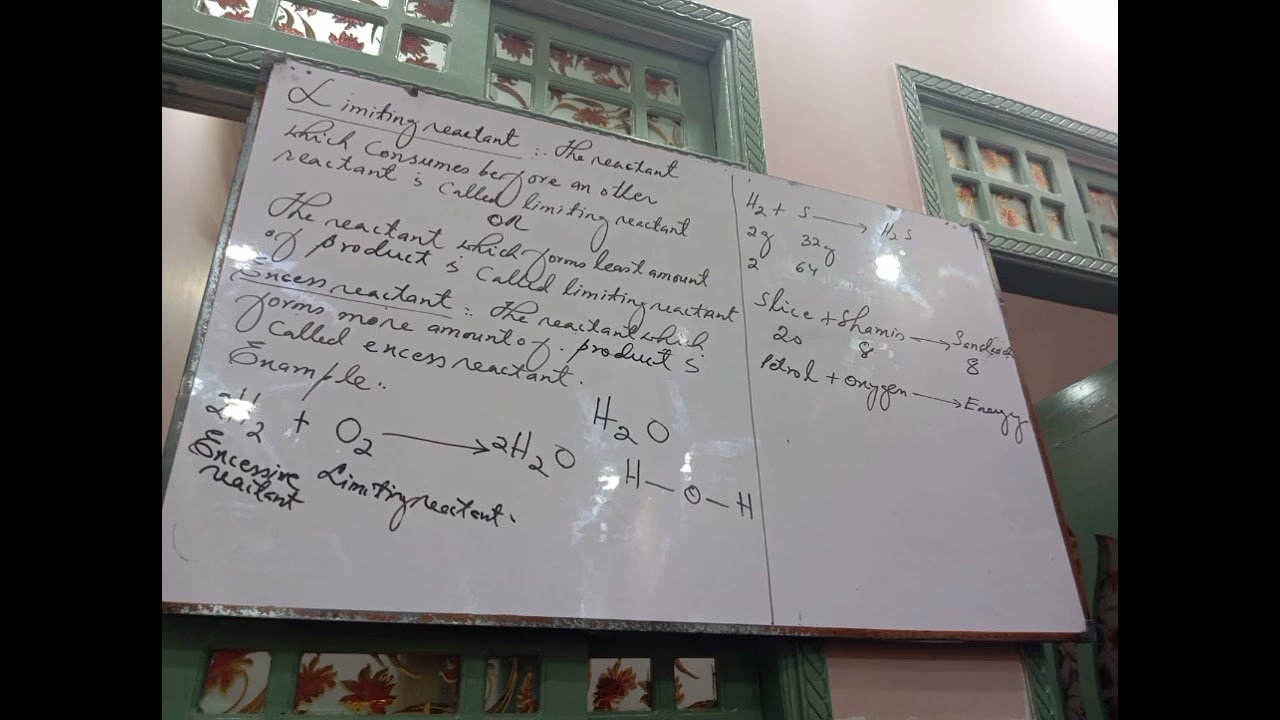 Limiting reactant :. The reactant
which consumes before an other
reactant is called limiting reactant
OR
The reactant which forms least amount
of product is called limiting reactant
Excess reactant :. The reactant which
forms more amount of product is
called excess reactant.
Example:.
2H₂ + O₂ ⟶ 2H₂O
Excessive Limiting reactant.
reactant
H₂O
H – O – H
H₂ + S ⟶ H₂S
2g 32g
2 64
Slice + Shamin ⟶
20 8 8
Petrol + Oxygen ⟶ Energy